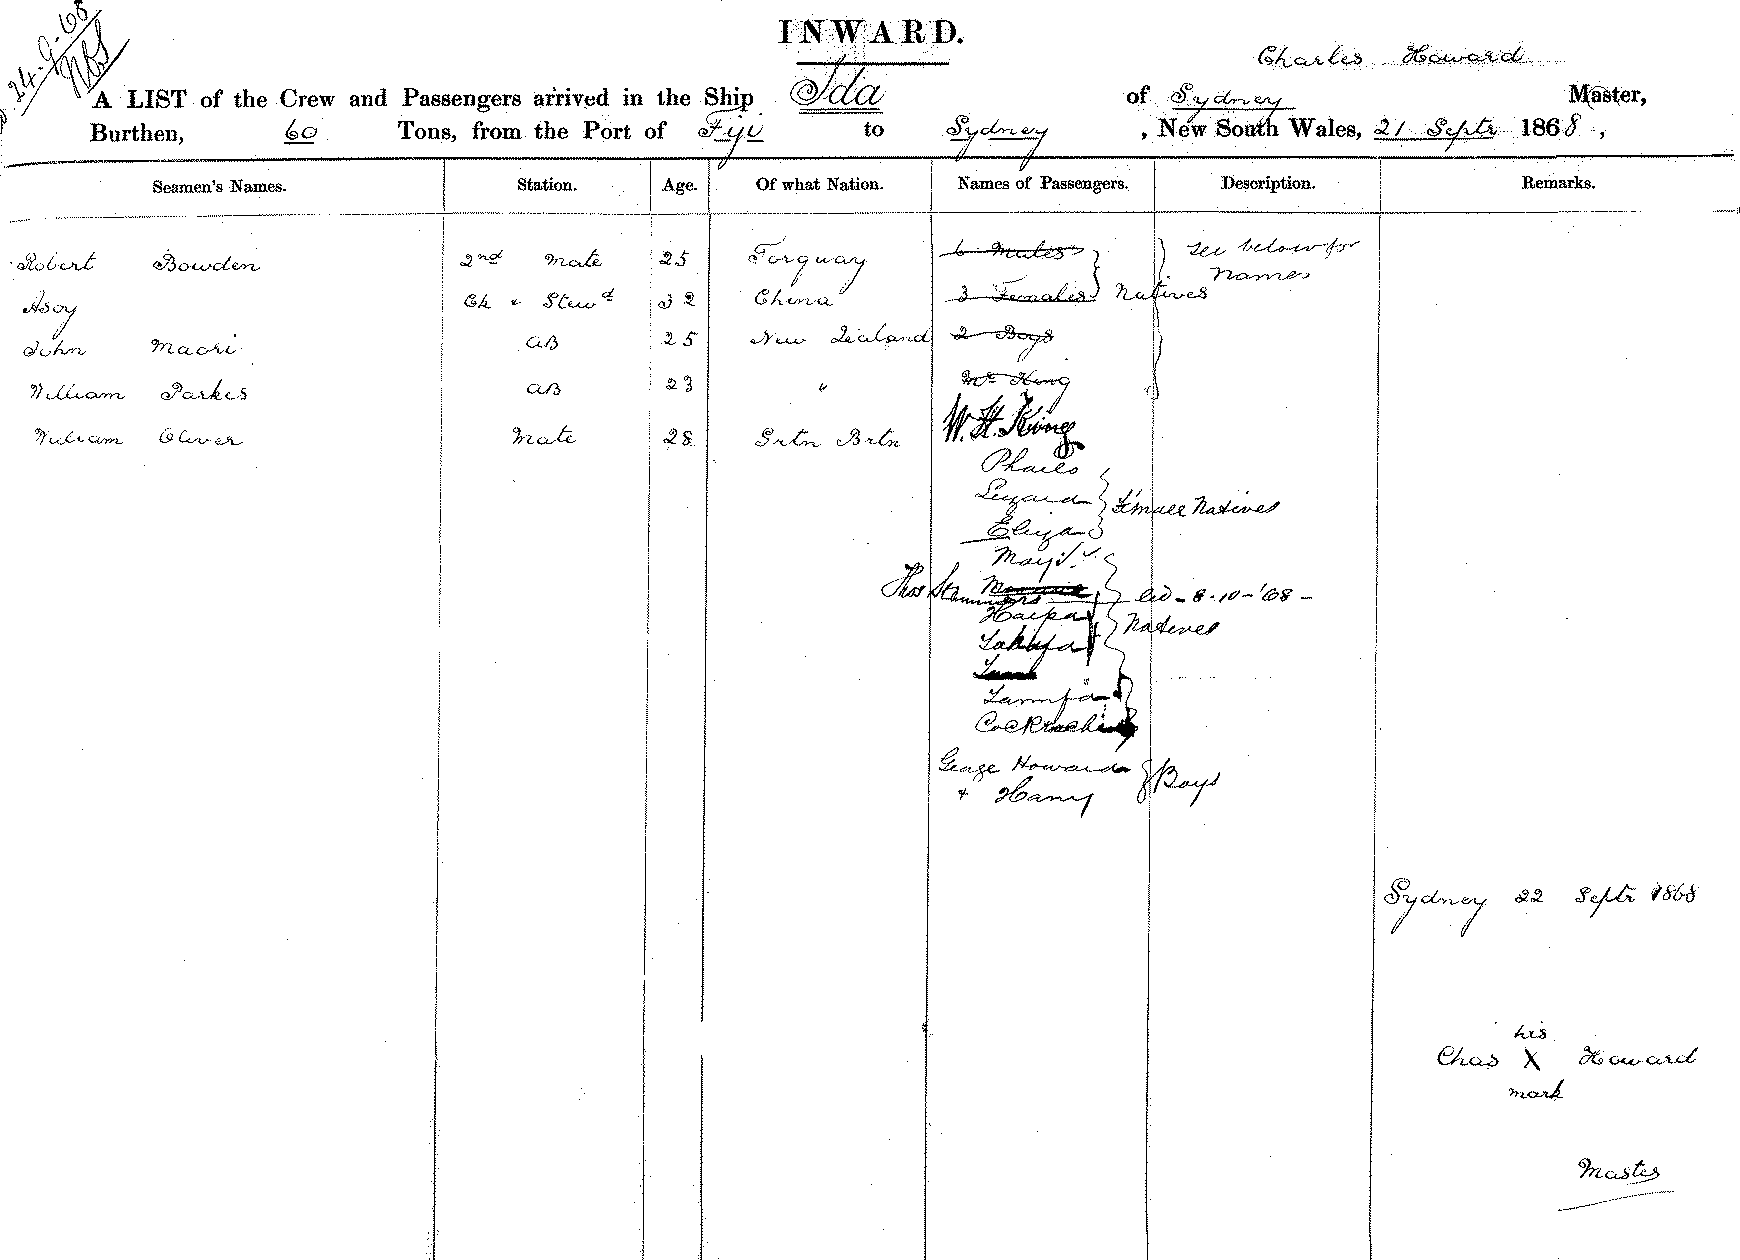 24-9-68
INWARD.
Charles Howard
A LIST of the Crew and Passengers arrived in the Ship Ida of Sydney Master,
Burthen, 60 Tons, from the Port of Fiji to Sydney , New South Wales, 21 Septr 1868 ,
Seamen's Names. Station. Age. Of what Nation. Names of Passengers. Description. Remarks.
Robert Bowden 2nd Mate 25 Torquay 6 Males see below for
names
Asoy Ck & Stewd 32 China 3 Females Natives
John Maori AB 25 New Zealand 2 Boys
William Parkes AB 23 " Mr King
W. H. King
William Oliver Mate 28 Grtn Brtn
Phaeo
Lizard Female Natives
Eliza
Thos Stammers - 8-10-'68-
Natives
George Howard Boys
& Harry
Sydney 22 Septr 1868
his
Chas X Howard
mark
Master